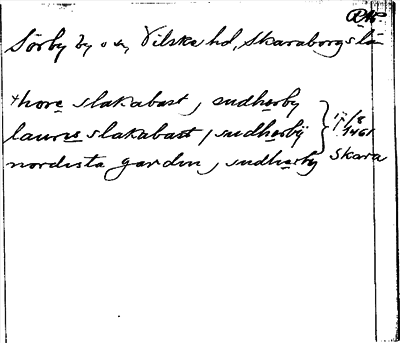 RAP
Sörby by o sn, Vilske hd, Skaraborgs län
thore slakabast, sudherby
lauris slakabast, sudherby
nordista garden, sudherby
17/8 1461
Skara